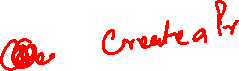 Create a Pr